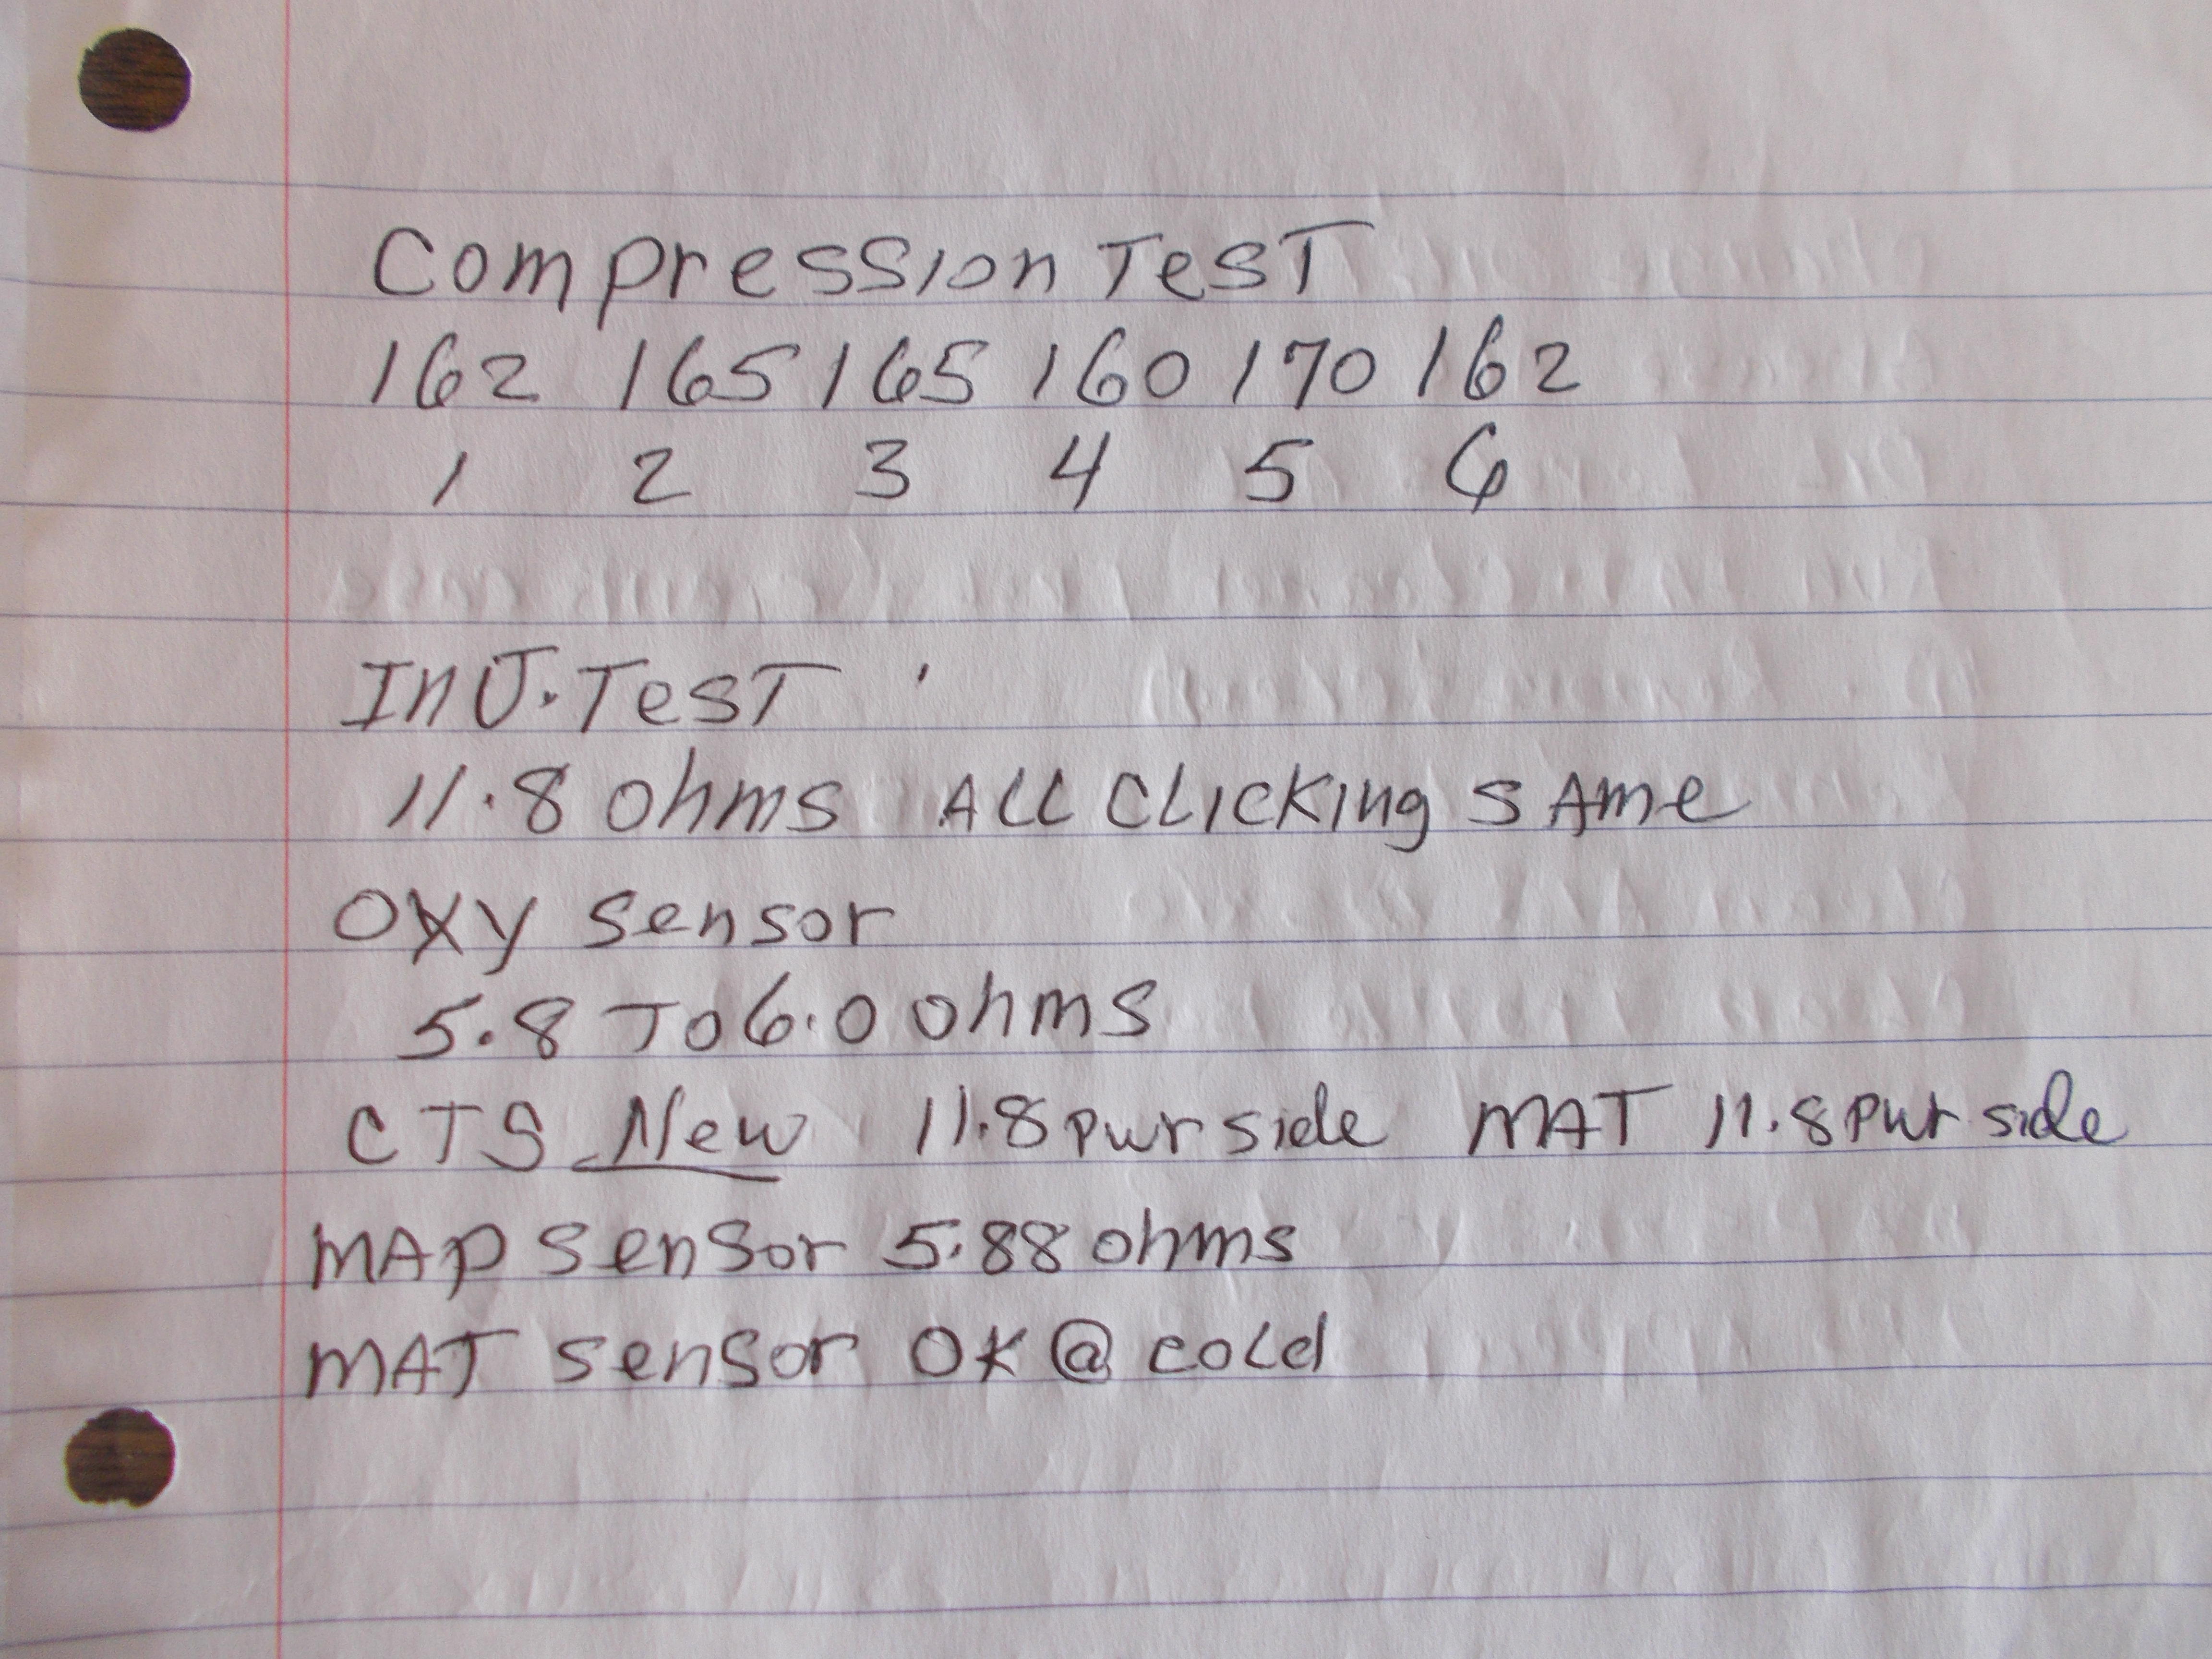 Compression Test
162 165 165 160 170 162
1 2 3 4 5 6
InJ. Test
11.8 ohms ALL CLICKING SAME
OXY Sensor
5.8 To 6.0 ohms
CTS New 11.8 pwr side MAT 11.8 pwr side
MAP Sensor 5.88 ohms
MAT Sensor OK @ cold